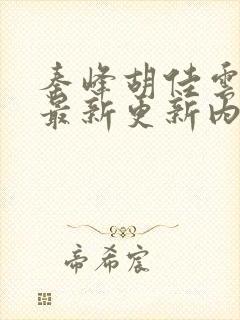 秦峰胡佳雲
最新更新内
帝希宸